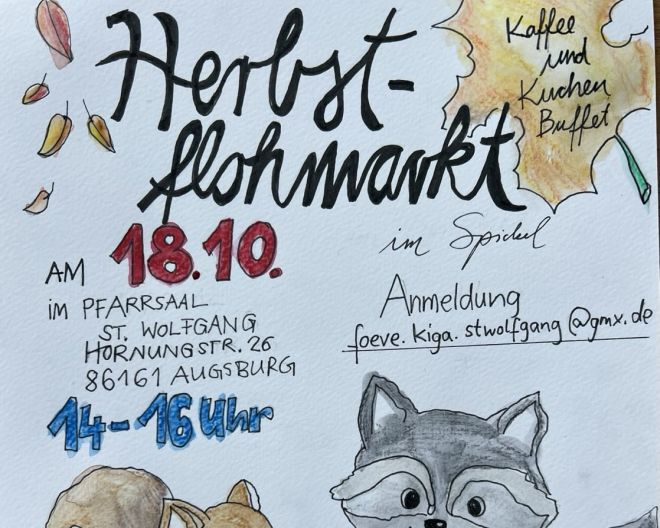 Herbst-
flohmarkt
Kaffee
und
Kuchen
Buffet
im Spickel
AM 18.10.
im PFARRSAAL
ST. WOLFGANG
HORNUNGSTR. 26
86161 AUGSBURG
14-16 Uhr
Anmeldung
foeve.kiga.stwolfgang@gmx.de